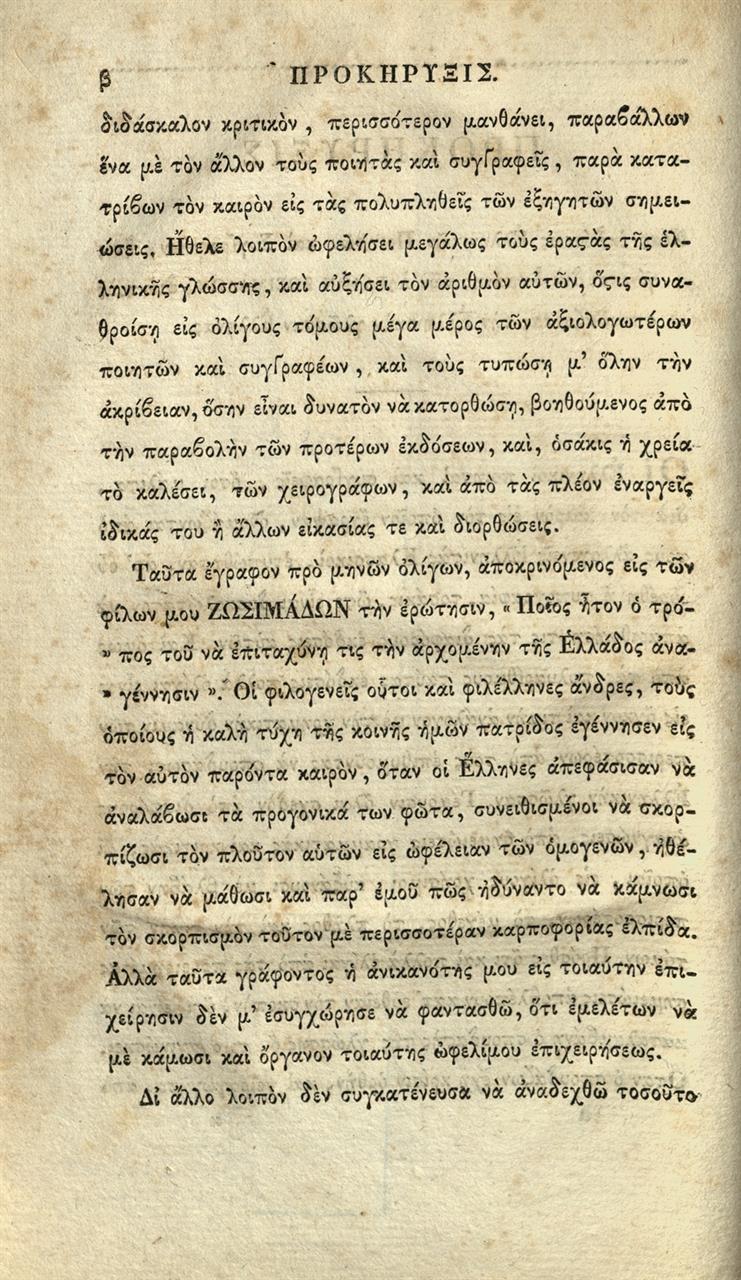 β ΠΡΟΚΗΡΥΞΙΣ.
διδάσκαλον κριτικὸν, περισσότερον μανθάνει, παραβάλλων
ἕνα μὲ τὸν ἄλλον τοὺς ποιητὰς καὶ συγγραφεῖς, παρὰ κατα-
τρίβων τὸν καιρὸν εἰς τὰς πολυπληθεῖς τῶν ἐξηγητῶν σημει-
ώσεις. Ἤθελε λοιπὸν ὠφελήσει μεγάλως τοὺς ἐραϛὰς τῆς ἑλ-
ληνικῆς γλώσσης, καὶ αὐξήσει τὸν ἀριθμὸν αὐτῶν, ὅϛις συνα-
θροίσῃ εἰς ὀλίγους τόμους μέγα μέρος τῶν ἀξιολογωτέρων
ποιητῶν καὶ συγγραφέων, καὶ τοὺς τυπώσῃ μ' ὅλην τὴν
ἀκρίβειαν, ὅσην εἶναι δυνατὸν νὰ κατορθώσῃ, βοηθούμενος ἀπὸ
τὴν παραβολὴν τῶν προτέρων ἐκδόσεων, καὶ, ὁσάκις ἡ χρεία
τὸ καλέσει, τῶν χειρογράφων, καὶ ἀπὸ τὰς πλέον ἐναργεῖς
ἰδικάς του ἢ ἄλλων εἰκασίας τε καὶ διορθώσεις.
Ταῦτα ἔγραφον πρὸ μηνῶν ὀλίγων, ἀποκρινόμενος εἰς τῶν
φίλων μου ΖΩΣΙΜΆΔΩΝ τὴν ἐρώτησιν, « Ποῖος ἦτον ὁ τρό-
» πος τοῦ νὰ ἐπιταχύνῃ τις τὴν ἀρχομένην τῆς Ἑλλάδος ἀνα-
» γέννησιν ». Οἱ φιλογενεῖς οὗτοι καὶ φιλέλληνες ἄνδρες, τοὺς
ὁποίους ἡ καλὴ τύχη τῆς κοινῆς ἡμῶν πατρίδος ἐγέννησεν εἰς
τὸν αὐτὸν παρόντα καιρὸν, ὅταν οἱ Ἕλληνες ἀπεφάσισαν νὰ
ἀναλάβωσι τὰ προγονικά των φῶτα, συνειθισμένοι νὰ σκορ-
πίζωσι τὸν πλοῦτον αὑτῶν εἰς ὠφέλειαν τῶν ὁμογενῶν, ἠθέ-
λησαν νὰ μάθωσι καὶ παρ' ἐμοῦ πῶς ἠδύναντο νὰ κάμνωσι
τὸν σκορπισμὸν τοῦτον μὲ περισσοτέραν καρποφορίας ἐλπίδα.
Ἀλλὰ ταῦτα γράφοντος ἡ ἀνικανότης μου εἰς τοιαύτην ἐπι-
χείρησιν δὲν μ' ἐσυγχώρησε νὰ φαντασθῶ, ὅτι ἐμελέτων νὰ
μὲ κάμωσι καὶ ὄργανον τοιαύτης ὠφελίμου ἐπιχειρήσεως.
Δἰ ἄλλο λοιπὸν δὲν συγκατένευσα νὰ ἀναδεχθῶ τοσοῦτο